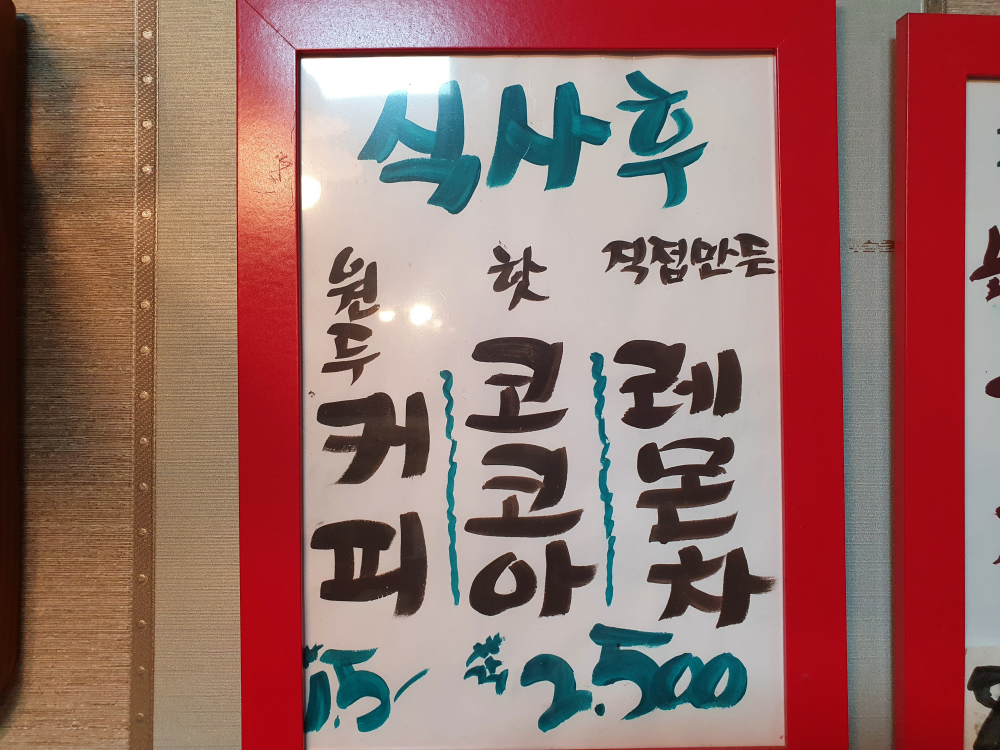 식사후
원두 커피
핫 코코아
직접만든 레몬차
2.500